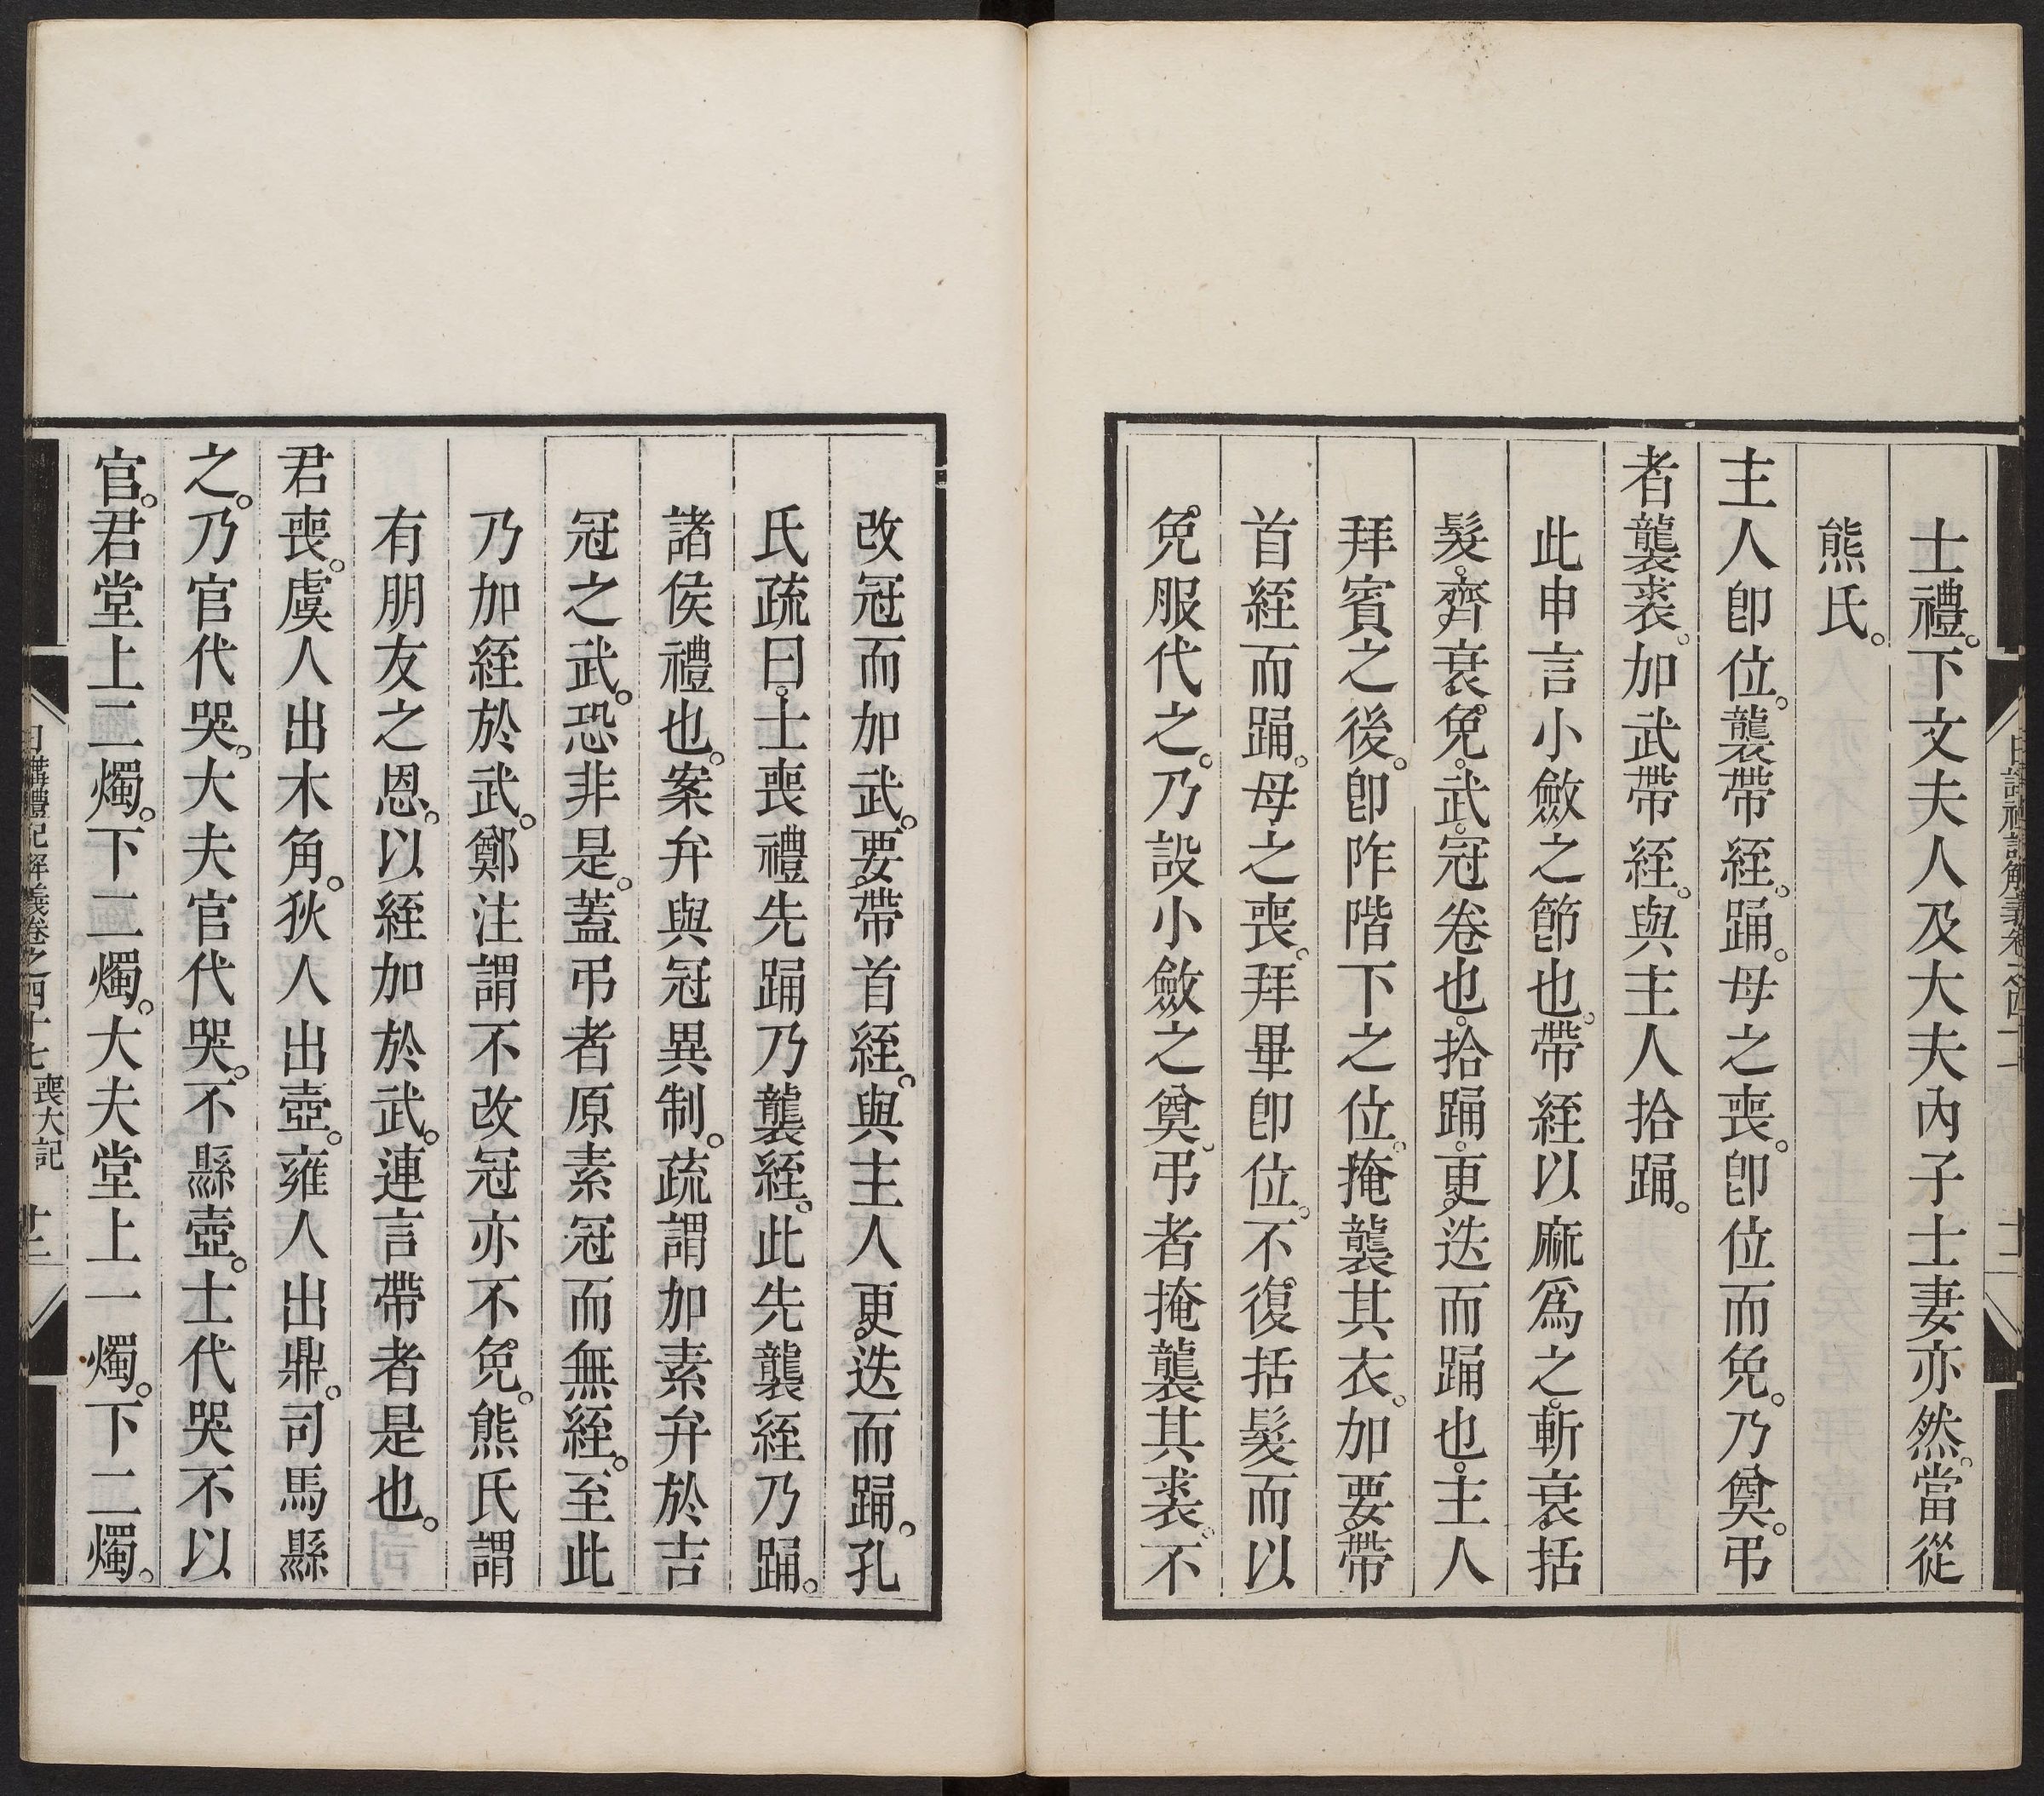 士禮。下文夫人及大夫內子士妻亦然。當從
熊氏。
主人卽位。襲帶絰。踊。母之喪。卽位而免。乃奠。弔
者襲裘。加武帶絰。與主人拾踊。
此申言小斂之節也。帶絰以麻爲之。斬衰括
髮。齊衰免。武。冠卷也。拾踊。更迭而踊也。主人
拜賓之後。卽阼階下之位。掩襲其衣。加要帶
首絰而踊。母之喪。拜畢卽位。不復括髮而以
免服代之。乃設小斂之奠。弔者掩襲其裘。不
改冠而加武。要帶首絰。與主人更迭而踊。孔
氏疏曰。士喪禮先踊乃襲絰。此先襲絰乃踊。
諸侯禮也。案弁與冠異制。疏謂加素弁於吉
冠之武。恐非是。蓋弔者原素冠而無絰。至此
乃加絰於武。鄭注謂不改冠。亦不免。熊氏謂
有朋友之恩。以絰加於武。連言帶者是也。
君喪。虞人出木角。狄人出壺。雍人出鼎。司馬縣
之。乃官代哭。大夫官代哭。不縣壺。士代哭不以
官。君堂上二燭。下二燭。大夫堂上一燭。下二燭。
日講禮記解義卷之四十七 喪大記 十二